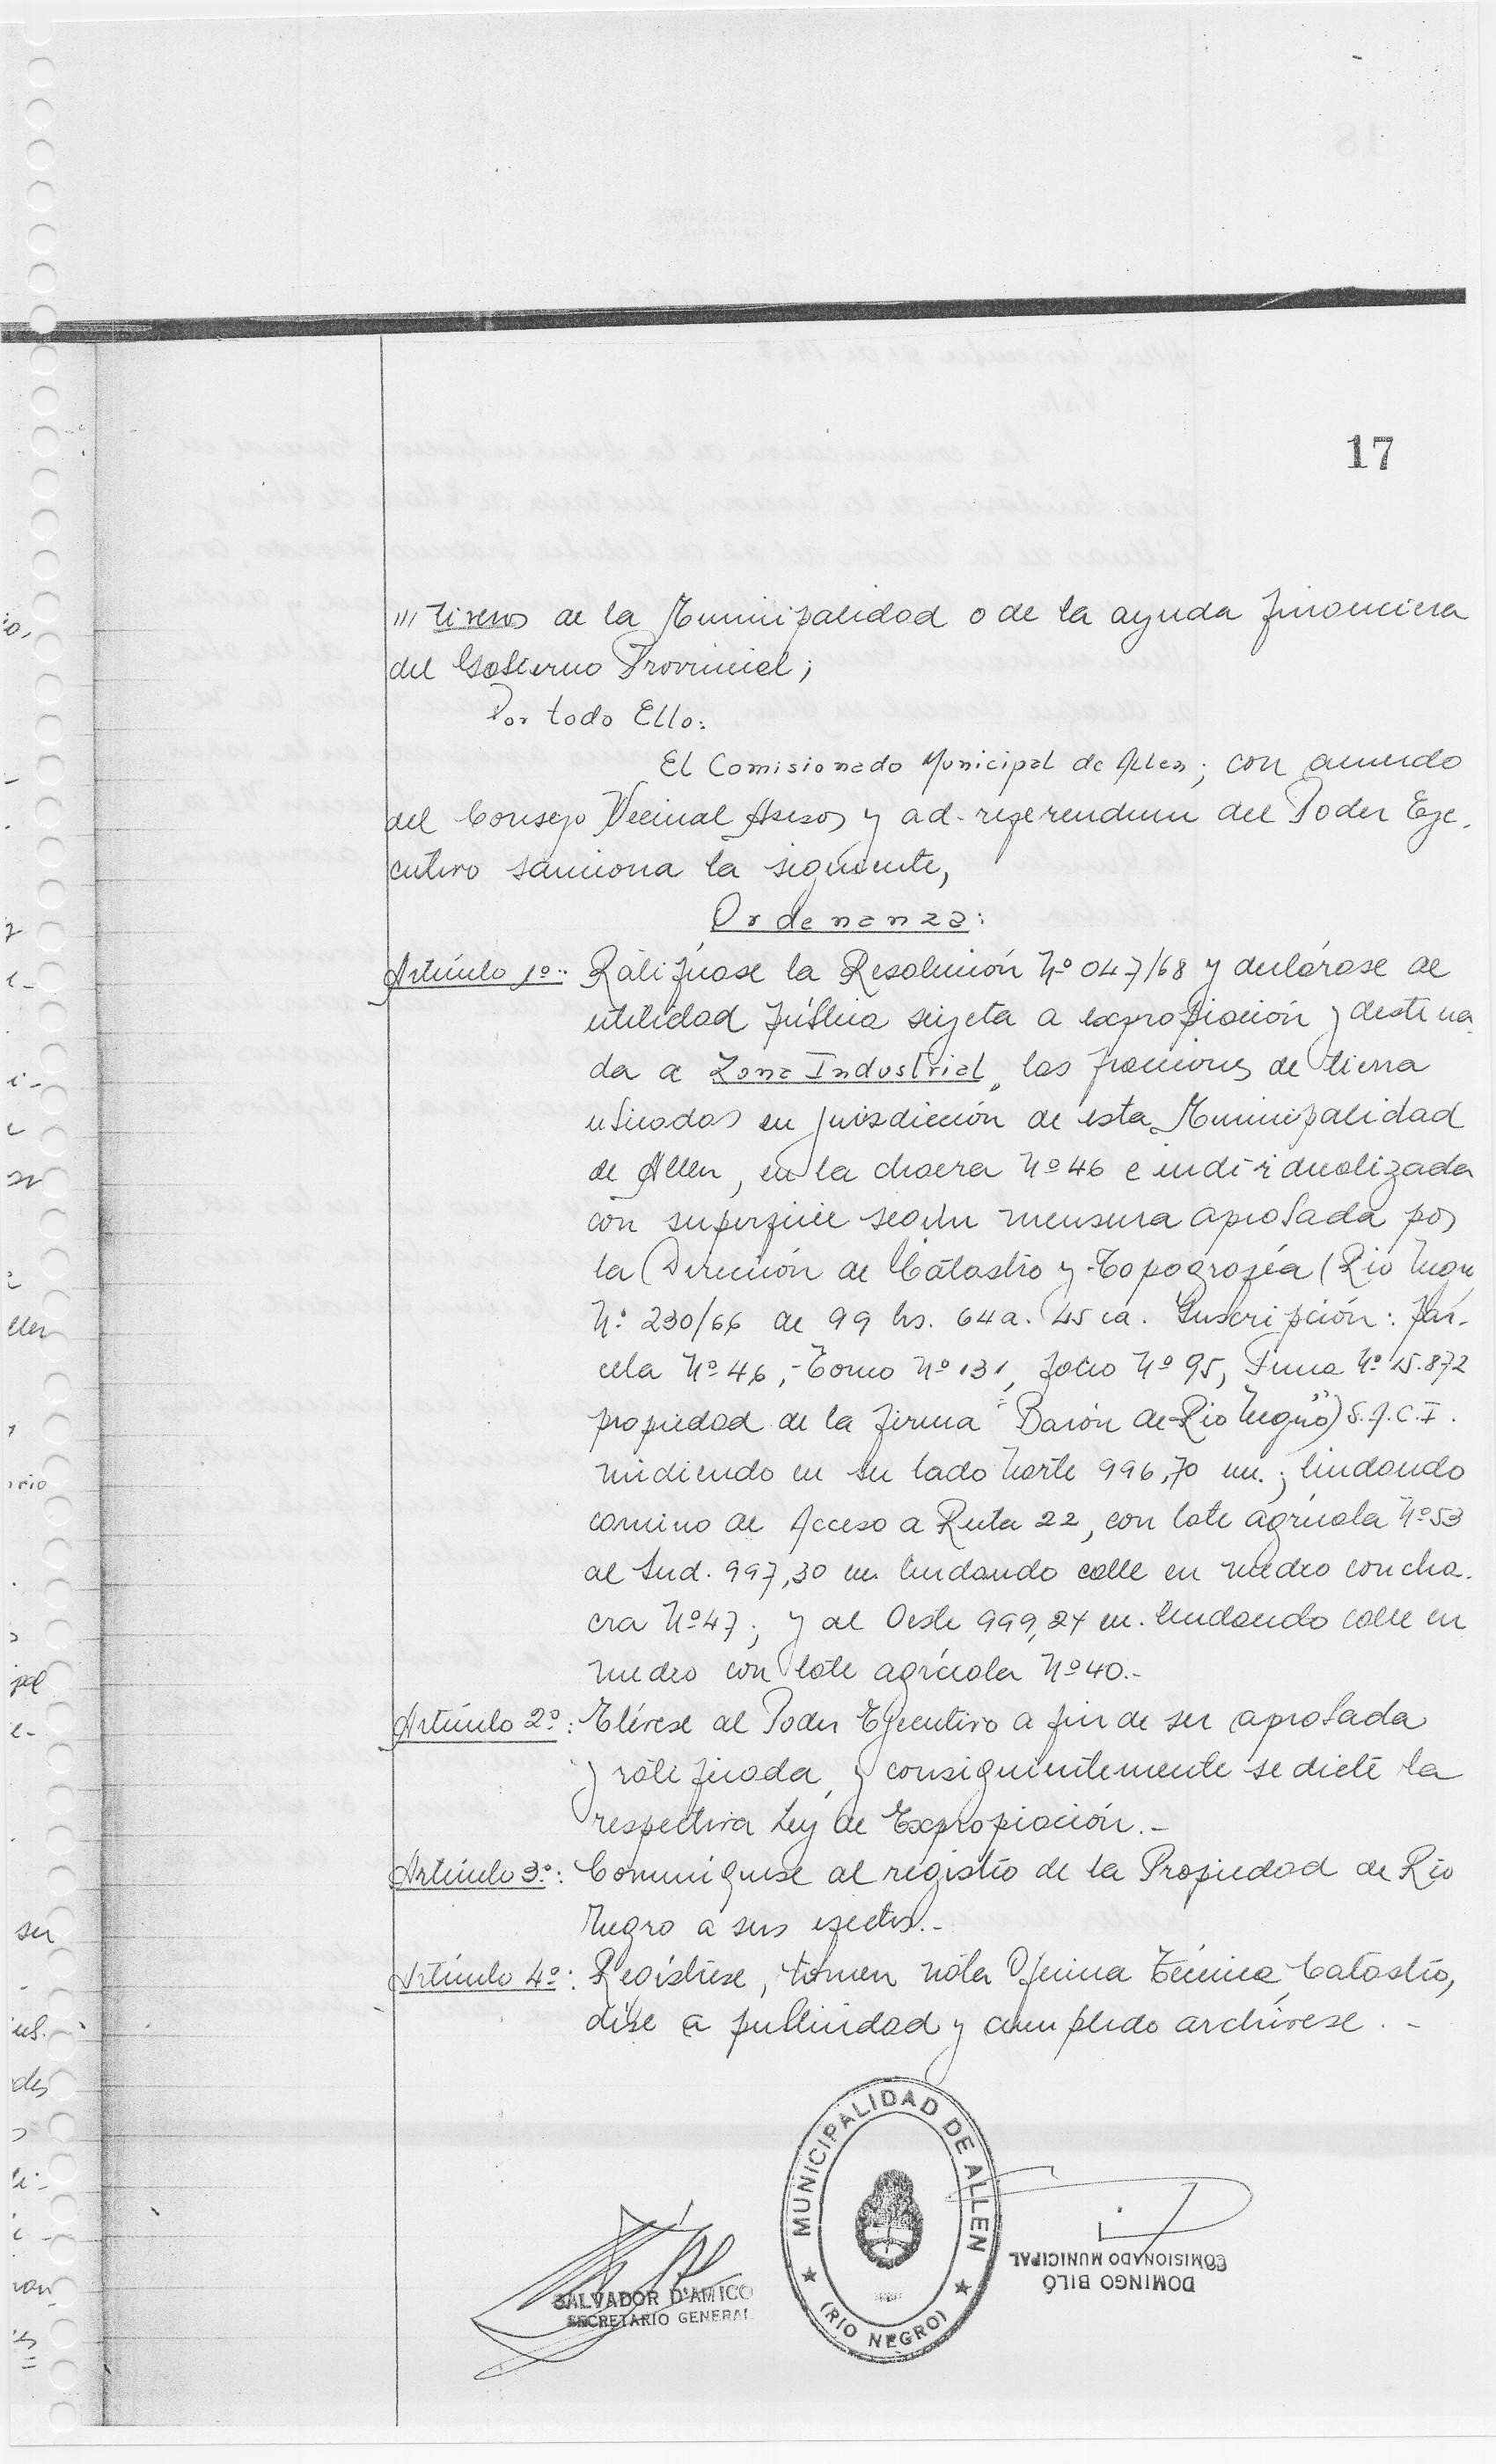 17
/// tivesos de la Municipalidad o de la ayuda financiera
del Gobierno Provincial;
Por todo Ello:
El Comisionado Municipal de Allen; con acuerdo
del Consejo Vecinal Asesor y ad-referendum del Poder Eje-
cutivo sanciona la siguiente,
Ordenanza:
Artículo 1º: Ratifícase la Resolución Nº 047/68 y declárase de
utilidad pública sujeta a expropiación y destina
da a Zona Industrial, las fracciones de tierra
ubicadas en jurisdicción de esta Municipalidad
de Allen, en la chacra Nº 46 e individualizada
con superficie según mensura aprobada por
la Dirección de Catastro y Topografía (Rio Negro
Nº 230/66 de 99 hs. 64a. 45 ca. Inscripción: Par-
cela Nº 46, Tomo Nº 131, folio Nº 95, Finca Nº 15.872
propiedad de la firma "Barón de Rio Negro") S.A.C.I.
midiendo en su lado Norte 996,70 m.; lindando
camino de Acceso a Ruta 22, con lote agrícola Nº 53
al Sud. 997,30 m lindando calle en medio con cha-
cra Nº 47; y al Oeste 999,24 m. lindando calle en
medio con lote agrícola Nº 40.-
Artículo 2º: Elévese al Poder Ejecutivo a fin de ser aprobada
y ratificada, y consiguientemente se dicte la
respectiva Ley de Expropiación.-
Artículo 3º: Comuníquese al registro de la Propiedad de Rio
Negro a sus efectos.-
Artículo 4º: Regístrese, tomen nota Oficina Técnica, Catastro,
dése a publicidad y cumplido archívese.-
MUNICIPALIDAD DE ALLEN
(RIO NEGRO)
SALVADOR D'AMICO
SECRETARIO GENERAL
DOMINGO BILÓ
COMISIONADO MUNICIPAL